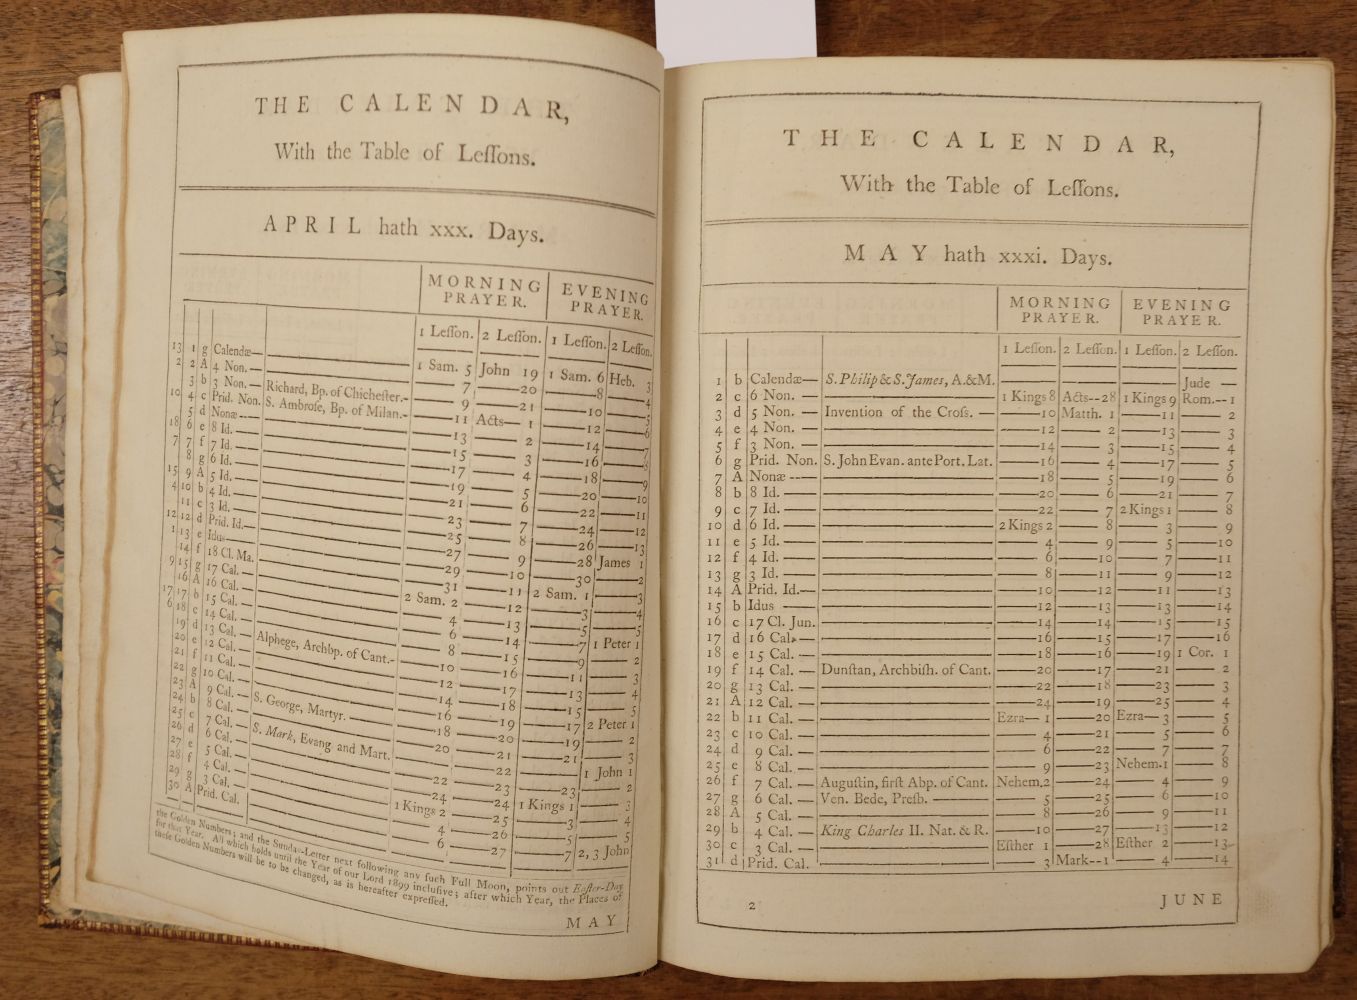 THE CALENDAR,
With the Table of Leſſons.
APRIL hath xxx. Days.
MORNING PRAYER.
EVENING PRAYER.
1 Leſſon. 2 Leſſon. 1 Leſſon. 2 Leſſon.
13 1 g Calendæ— 1 Sam. 5 John 19 1 Sam. 6 Heb. 3
2 2 A 4 Non. — 7 —20 —8 —4
3 b 3 Non. — Richard, Bp. of Chicheſter.- —9 —21 —10 —5
10 4 c Prid. Non. S. Ambroſe, Bp. of Milan.- —11 Acts— 1 —12 —6
5 d Nonæ— —13 — 2 —14 —7
18 6 e 8 Id. — —15 — 3 —16 —8
7 7 f 7 Id. — —17 — 4 —18 —9
8 g 6 Id. — —19 — 5 —20 —10
15 9 A 5 Id. — —21 — 6 —22 —11
4 10 b 4 Id. — —23 — 7 —24 —12
11 c 3 Id. — —25 — 8 —26 —13
12 12 d Prid. Id.— —27 — 9 —28 James 1
1 13 e Idus— —29 —10 —30 —2
14 f 18 Cl. Ma. —31 —11 2 Sam. 1 —3
9 15 g 17 Cal. — 2 Sam. 2 —12 —3 —4
16 A 16 Cal. — — 4 —13 —5 —5
17 17 b 15 Cal. — — 6 —14 —7 1 Peter 1
6 18 c 14 Cal. — — 8 —15 —9 — 2
19 d 13 Cal. — Alphege, Archbp. of Cant.- —10 —16 —11 — 3
20 e 12 Cal. — —12 —17 —13 — 4
21 f 11 Cal. — —14 —18 —15 — 5
22 g 10 Cal. — —16 —19 —17 2 Peter 1
23 A 9 Cal. — S. George, Martyr. — —18 —20 —19 — 2
24 b 8 Cal. — —20 —21 —21 — 3
25 c 7 Cal. — S. Mark, Evang and Mart. —22 1 John 1
26 d 6 Cal. — —22 —23 —23 — 2
27 e 5 Cal. — —24 —24 1 Kings 1 — 3
28 f 4 Cal. — 1 Kings 2 —25 —3 — 4
29 g 3 Cal. — — 4 —26 —5 — 5
30 A Prid. Cal. — 6 —27 —7 2, 3 John
the Golden Numbers; and the Sunday-Letter next following any ſuch Full Moon, points out Eaſter-Day
for that Year. All which holds until the Year of our Lord 1899 incluſive; after which Year, the Places of
theſe Golden Numbers will be to be changed, as is hereafter expreſſed.
MAY
THE CALENDAR,
With the Table of Leſſons.
MAY hath xxxi. Days.
MORNING PRAYER.
EVENING PRAYER.
1 Leſſon. 2 Leſſon. 1 Leſſon. 2 Leſſon.
1 b Calendæ— S. Philip & S. James, A.&M. Jude —
2 c 6 Non. — 1 Kings 8 Acts--28 1 Kings 9 Rom.-- 1
3 d 5 Non. — Invention of the Croſs. — —10 Matth. 1 —11 — 2
4 e 4 Non. — —12 — 2 —13 — 3
5 f 3 Non. — —14 — 3 —15 — 4
6 g Prid. Non. S. John Evan. ante Port. Lat. —16 — 4 —17 — 5
7 A Nonæ --- —18 — 5 —19 — 6
8 b 8 Id. — —20 — 6 —21 — 7
9 c 7 Id. — —22 — 7 2 Kings 1 — 8
10 d 6 Id. — 2 Kings 2 — 8 — 3 — 9
11 e 5 Id. — — 4 — 9 — 5 —10
12 f 4 Id. — — 6 —10 — 7 —11
13 g 3 Id. — — 8 —11 — 9 —12
14 A Prid. Id.— —10 —12 —11 —13
15 b Idus — —12 —13 —13 —14
16 c 17 Cl. Jun. —14 —14 —15 —15
17 d 16 Cal.— —16 —15 —17 —16
18 e 15 Cal. — —18 —16 —19 1 Cor. 1
19 f 14 Cal. — Dunſtan, Archbiſh. of Cant. —20 —17 —21 — 2
20 g 13 Cal. — —22 —18 —23 — 3
21 A 12 Cal. — —24 —19 —25 — 4
22 b 11 Cal. — Ezra— 1 —20 Ezra— 3 — 5
23 c 10 Cal. — — 4 —21 — 5 — 6
24 d 9 Cal. — — 6 —22 — 7 — 7
25 e 8 Cal. — — 9 —23 Nehem.1 — 8
26 f 7 Cal. — Auguſtin, firſt Abp. of Cant. Nehem.2 —24 — 4 — 9
27 g 6 Cal. — Ven. Bede, Preſb. — — 5 —25 — 6 —10
28 A 5 Cal. — — 8 —26 — 9 —11
29 b 4 Cal. — King Charles II. Nat. & R. —10 —27 —13 —12
30 c 3 Cal. — Eſther 1 —28 Eſther 2 —13
31 d Prid. Cal. — 3 Mark--1 — 4 —14
2
JUNE